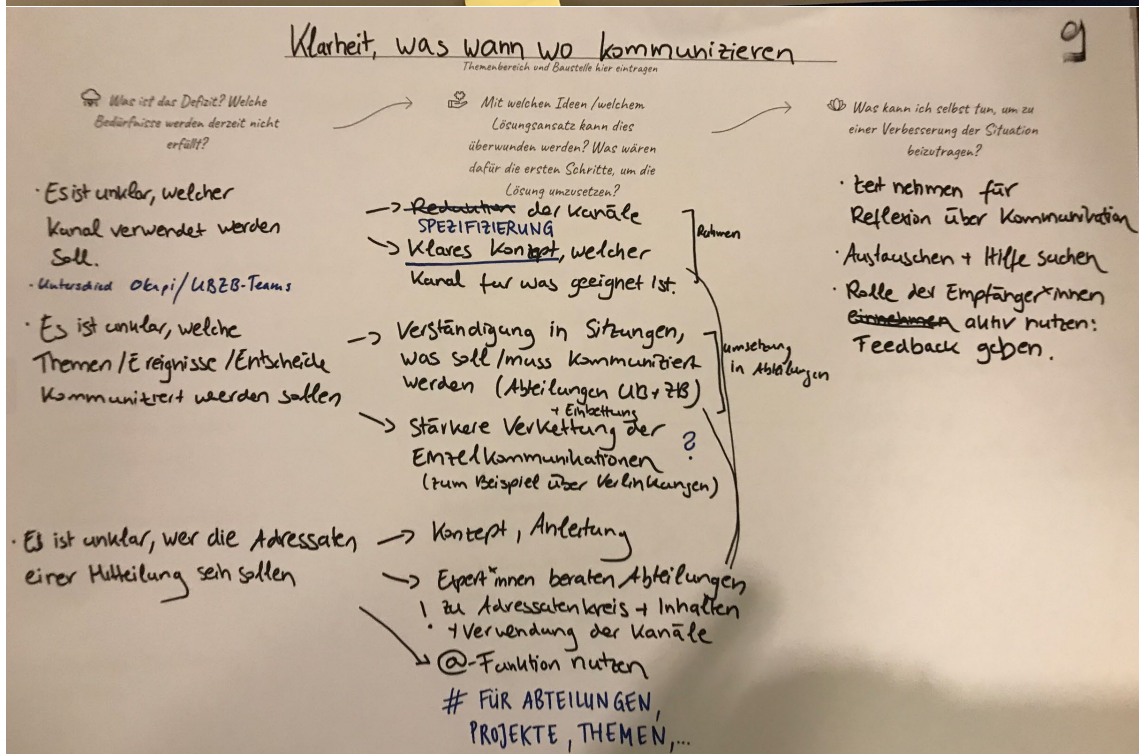 Klarheit, was wann wo kommunizieren
9
Themenbereich und Baustelle hier eintragen
Was ist das Defizit? Welche
Bedürfnisse werden derzeit nicht
erfüllt?
· Es ist unklar, welcher
Kanal verwendet werden
soll.
- Unterschied Okapi/UBZB-Teams
· Es ist unklar, welche
Themen/Ereignisse/Entscheide
kommuniziert werden sollen
· Es ist unklar, wer die Adressaten
einer Mitteilung sein sollen
Mit welchen Ideen/welchem
Lösungsansatz kann dies
überwunden werden? Was wären
dafür die ersten Schritte, um die
Lösung umzusetzen?
→ Reduktion der Kanäle
SPEZIFIZIERUNG
→ Klares Konzept, welcher
Kanal für was geeignet ist.
Rahmen
→ Verständigung in Sitzungen,
was soll/muss kommuniziert
werden (Abteilungen UB+ZB)
umsetzung
in Abteilungen
+ Einbettung
→ Stärkere Verkettung der
Einzelkommunikationen ?
(zum Beispiel über Verlinkungen)
→ Konzept, Anleitung
→ Expert*innen beraten Abteilungen
! zu Adressatenkreis + Inhalten
+ Verwendung der Kanäle
→ @-Funktion nutzen
# FÜR ABTEILUNGEN,
PROJEKTE, THEMEN,...
Was kann ich selbst tun, um zu
einer Verbesserung der Situation
beizutragen?
· Zeit nehmen für
Reflexion über Kommunikation
· Austauschen + Hilfe suchen
· Rolle der Empfänger*innen
einnehmen aktiv nutzen:
Feedback geben.